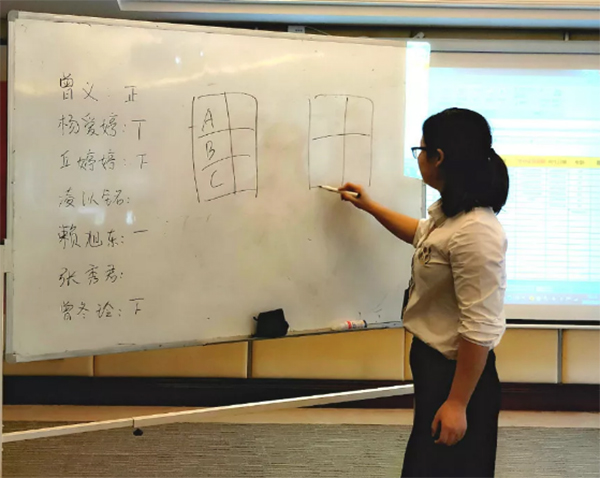 曾义: 正
杨爱婷: 丅
丘婷婷: 下
凌以铭:
赖旭东: 一
张秀君:
曾冬玲: 下
A
B
C